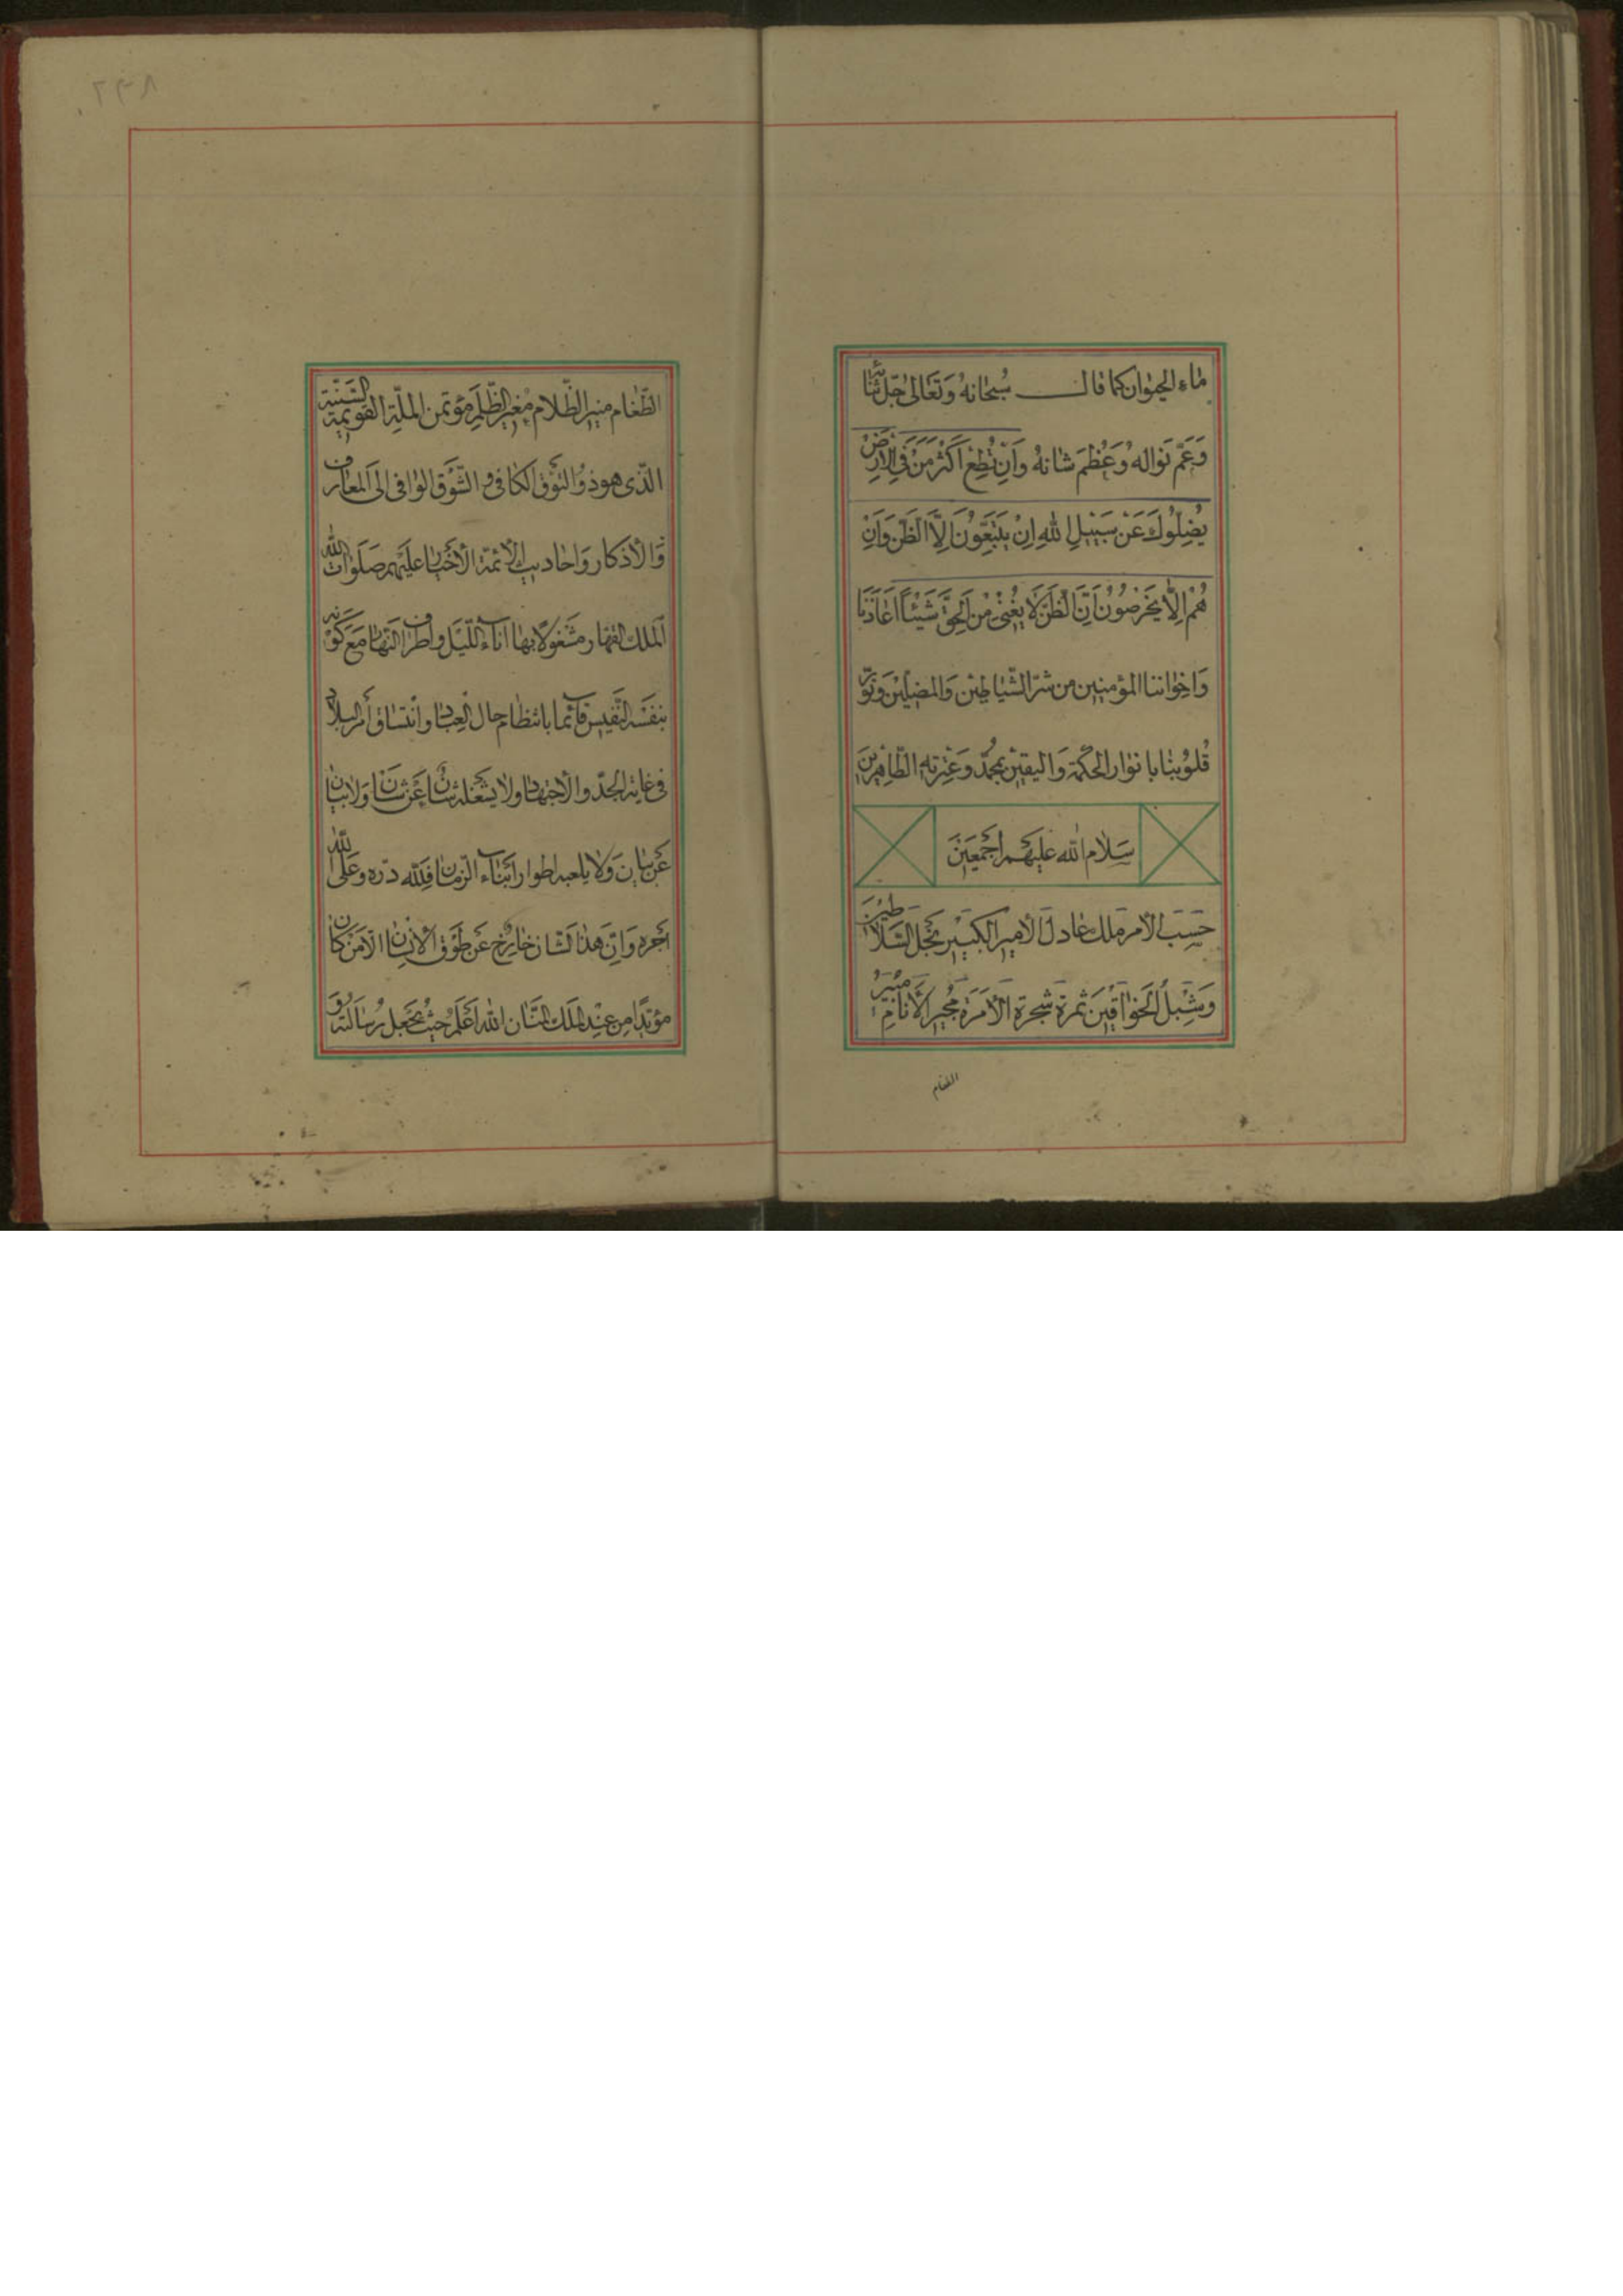 ماء الحيوان كما قال سبحانه وتعالى جل ثنائه
وَعَمَّ نَواله وَعَظُمَ شانه وَاِنْ تُطِعْ اَكْثَرَ مَنْ فِي الاَرْضِ
يُضِلّوُكَ عَنْ سَبيلِ اللهِ اِنْ يَتَّبِعُونَ اِلَّا الظَّنَّ وَاِنْ
هُمْ اِلّا يَخْرُصُونَ اِنَّ الظَّنَّ لا يُغْني مِنَ الحَقِّ شَيْئاً اَعاذَنَا
وَاِخواننا المؤمنين من شرّ الشّياطين وَالمضلّين وَنَوَّر
قُلوُبنا بانوار الحكمة وَاليقين بمحمّد وَعِترته الطّاهرين
سَلام الله عليهم اَجْمَعينَ
حَسب الامر ملك عادل الامير الكبير نجل السّلاطين
وَشبل الخواقين ثمرة شجرة الاَمَرة مُجير الانام مُبير
الطغام
الطّغام منير الظّلام مغير الظّلم مؤتمن الملّة القويمة السّنيّة
الّذى هو ذو التّوق الكافى و الشّوق الوافى الى المعارف
وَالاذكار وَاحاديث الائمّة الأخيار عليهم صَلَوات الله
الملك القهار مشغولا بها اناء اللّيل واطراف النّهار مَع كونه
بنفسه النّفيس قائما بانتظام حال العباد وانتساق أمر البلاد
فى غاية الجدّ والاجتهاد ولا يشغله شان عن شان ولا بيان
عن بيان وَلا يلعبه اطوار أبناء الزّمان فللّه درّه وعلى الله
اجره وَانّ هذا لشان خارج عن طوق الانسان الّا من كان
مؤيّدا من عند الملك المنّان الله اعلم حيث يجعل رسالته و